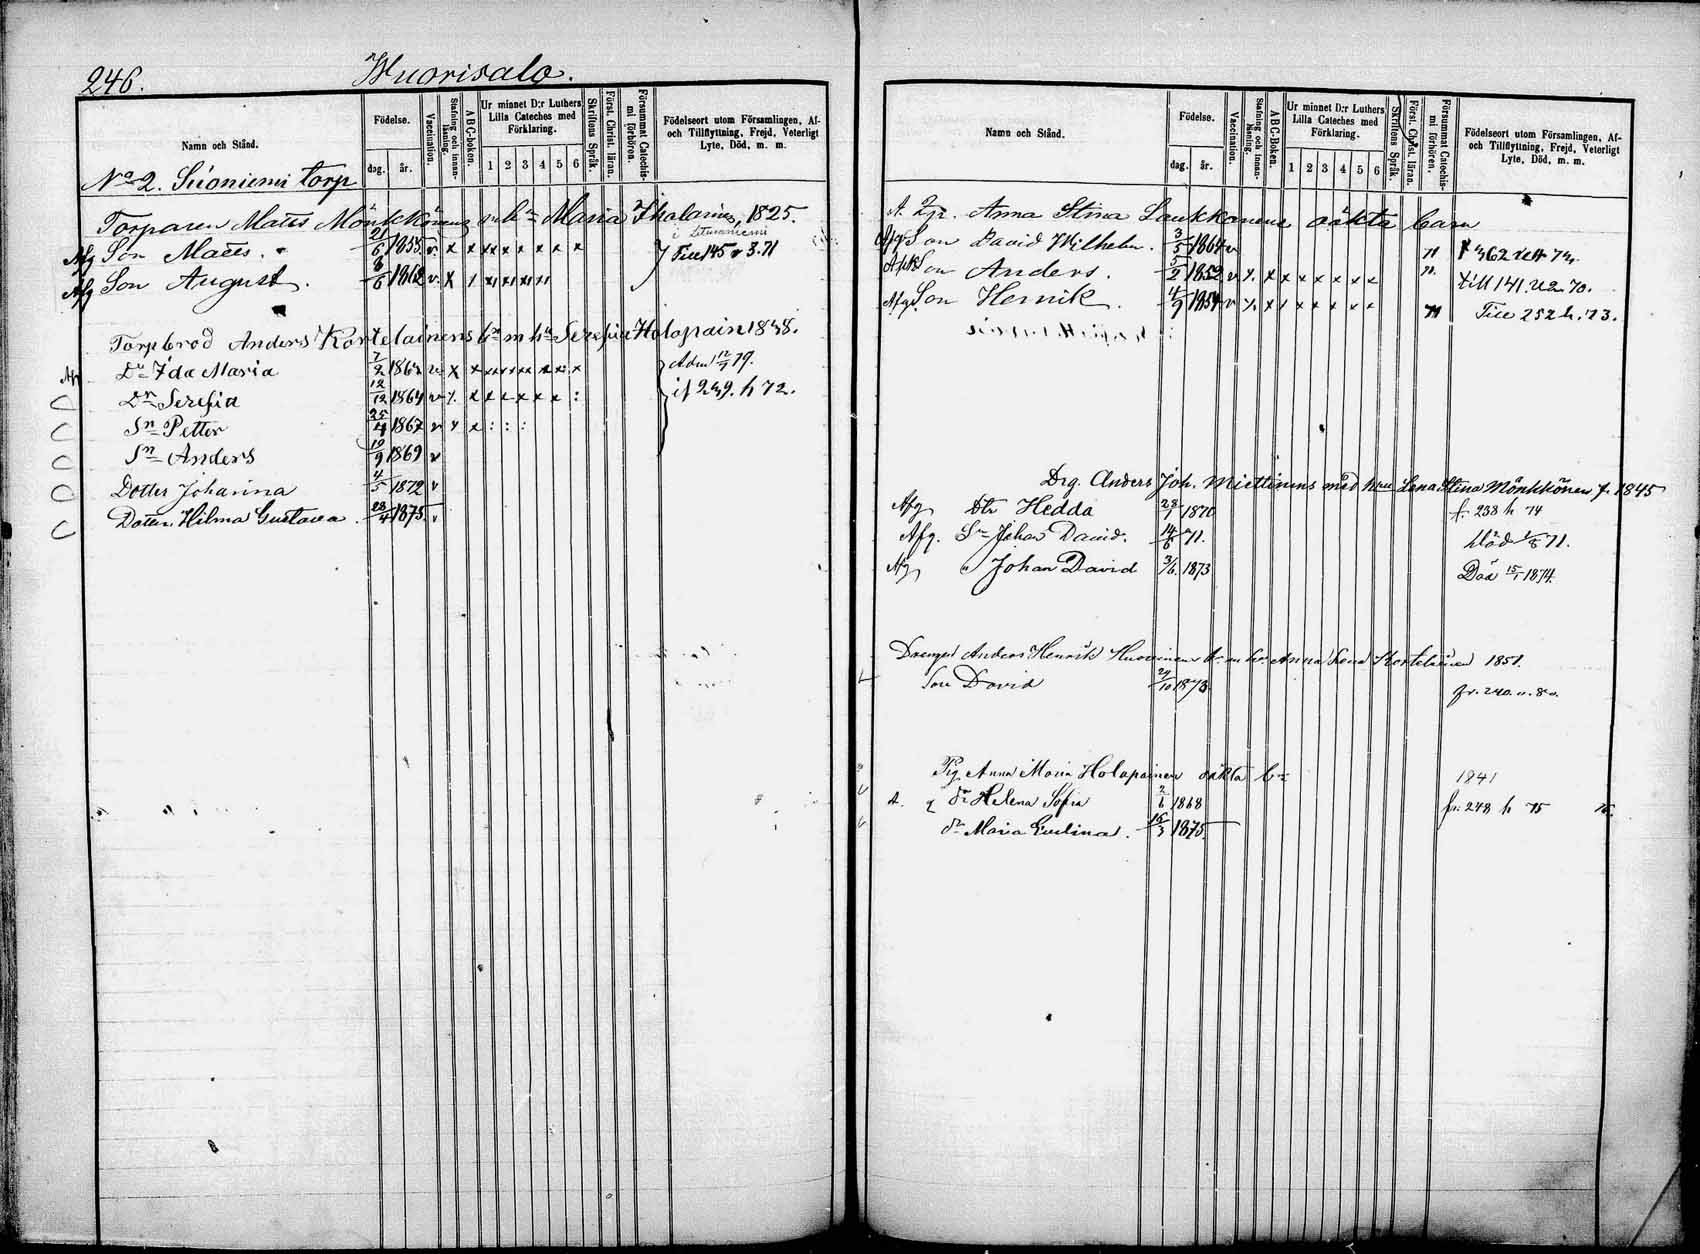 246. Wuorisalo.
Namn och Stånd.
Födelse.
dag. år.
Vaccination.
Stafning och innan-läsning.
A B C-Boken.
Ur minnet D:r Luthers Lilla Cateches med Förklaring.
1 2 3 4 5 6
Skriftens Språk.
Först. Christ. läran.
Försummat Catechis-mi förhören.
Födelseort utom Församlingen, Af- och Tillflyttning, Frejd, Veterligt Lyte, Död, m. m.
No 2. Suoniemi torp
Torparen Matts Mönkkönens m hu Maria Ihalainen, 1825.
Afg Son Matts. 21/6 1855 v. x x x x x x x x Till 145 v 3.71
Afg Son August. 1862 v. x
Torpbrod Anders Kortelainens bn m hu Serefia Holopain 1838.
Af Dr Ida Maria 7/2 1862 v x x x x x x x x
Dr Serefia 12/12 1864 v
if 239. h 72.
Sn Petter 25/4 1867 v x x : : :
Sn Anders 19/9 1869 v
Dotter Johanna 4/5 1872 v
Dotter Hilma Gustava. 28/4 1875. v
Namn och Stånd.
Födelse.
dag. år.
Vaccination.
Stafning och innan-läsning.
A B C-Boken.
Ur minnet D:r Luthers Lilla Cateches med Förklaring.
1 2 3 4 5 6
Skriftens Språk.
Först. Christ. läran.
Försummat Catechis-mi förhören.
Födelseort utom Församlingen, Af- och Tillflyttning, Frejd, Veterligt Lyte, Död, m. m.
Anna Stina Laukkanens oäkta barn
Afg Son David Wilhelm. 3/5 1864 v
Son Anders. 5/2 1852 v till 141.
Afg. Son Henrik 4/9 1854 v Till 252 h. 73.
Drg. Anders Joh. Miettinens med hru Lena Stina Mönkkönen f. 1845
Afg Dtr Hedda 28/1 1870 f. 238 h 74
Afg. Sn Johan David. 14/6 71. död 71.
Afg " Johan David 3/6. 1873 Död 15/1 1874.
Drengen Anders Henrik Huovinens bn m hu Anna Lena Kortelainen 1851.
Son David 29/10 1873. fr. 240.
Pig. Anna Maria Holopainen oäkta bn 1841
dr Helena Sofia 2/6 1868 fr. 248 h 75
dr Maria Evelina. 16/3 1875